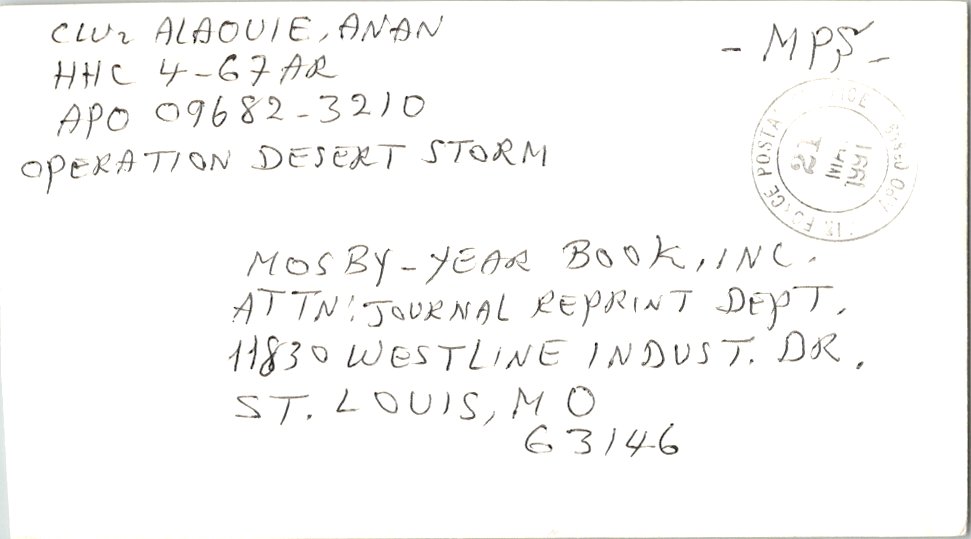 CW2 ALAOUIE, ANAN
HHC 4-67 AR
APO 09682-3210
OPERATION DESERT STORM
- MPS -
AIR FORCE POSTAL
21
1991
MOSBY-YEAR BOOK, INC.
ATTN: JOURNAL REPRINT DEPT.
11830 WESTLINE INDUST. DR.
ST. LOUIS, MO
63146